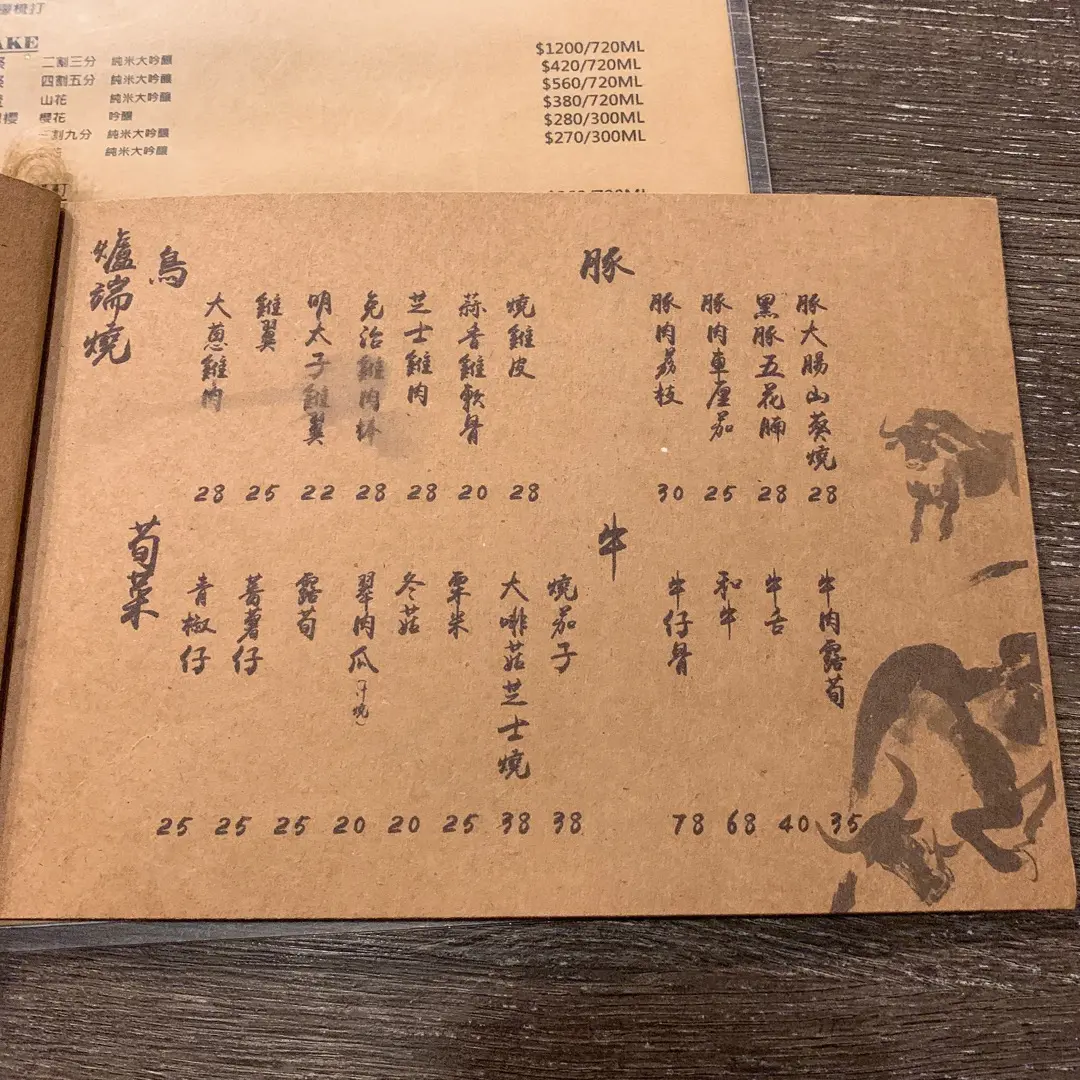 梳打
AKE
二割三分 純米大吟釀 $1200/720ML
四割五分 純米大吟釀 $420/720ML
山花 純米大吟釀 $560/720ML
櫻 櫻花 吟釀 $380/720ML
割九分 純米大吟釀 $280/300ML
純米大吟釀 $270/300ML
爐端燒
鳥
大蔥雞肉 28
雞翼 25
明太子雞翼 22
免治雞肉棒 28
芝士雞肉 28
蒜香雞軟骨 20
燒雞皮 28
豚
豚肉荔枝 30
豚肉車厘茄 25
黑豚五花腩 28
豚大腸山葵燒 28
荀菜
青椒仔 25
蕃薯仔 25
露荀 25
翠肉瓜(汁燒) 20
冬菇 20
粟米 25
大啡菇芝士燒 38
燒茄子 38
牛
牛仔骨 78
和牛 68
牛舌 40
牛肉露荀 35